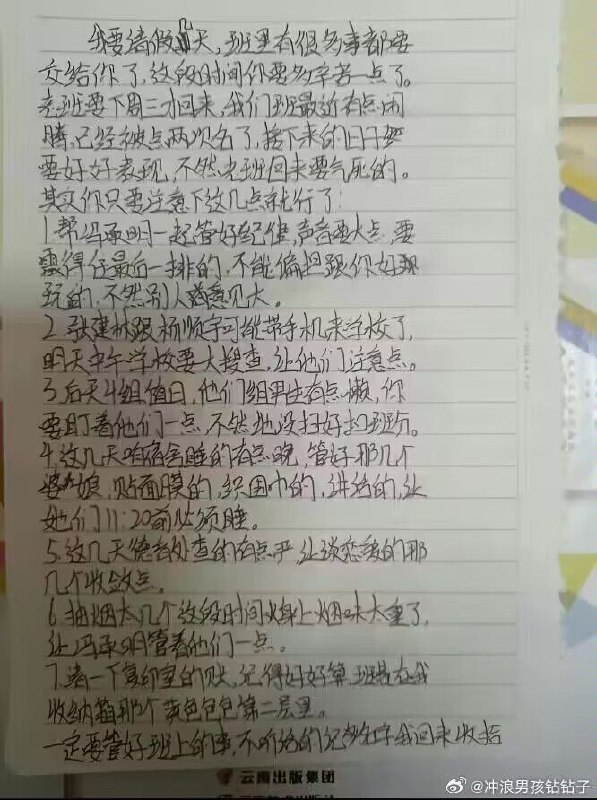 我要请假几天，班里有很多事都要
交给你了，这段时间你要多辛苦一点了。
老班要下周三才回来，我们班最近有点闹
腾，已经被点两次名了，接下来的日子要
要好好表现，不然老班回来要气死的。
其实你只要注意下这几点就行了：
1.帮冯承明一起管好纪律，声音要大点，要
震得住最后一排的，不能偏袒跟你好跟
玩的，不然别人意见大。
2.张建林跟杨顺宇可能带手机来学校了，
明天中午学校要大搜查，让他们注意点。
3.后天4组值日，他们组男生有点懒，你
要盯着他们一点，不然地没扫好扣班分。
4.这几天咱宿舍睡的有点晚，管好那几个
婆娘，贴面膜的，织围巾的，讲话的，让
她们11:20前必须睡。
5.这几天德育处查的有点严，让谈恋爱的那
几个收敛点。
6.抽烟太几个这段时间身上烟味太重了，
让冯承明管着他们一点。
7.清一下复印室的账，记得好好算，班费在我
收纳箱那个黄色包包第二层里。
一定要管好班上的事，不听话的记好名字我回来收拾
云南出版集团
@冲浪男孩钻钻子